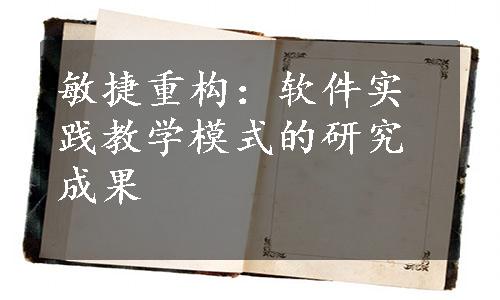 敏捷重构：软件实
践教学模式的研究
成果